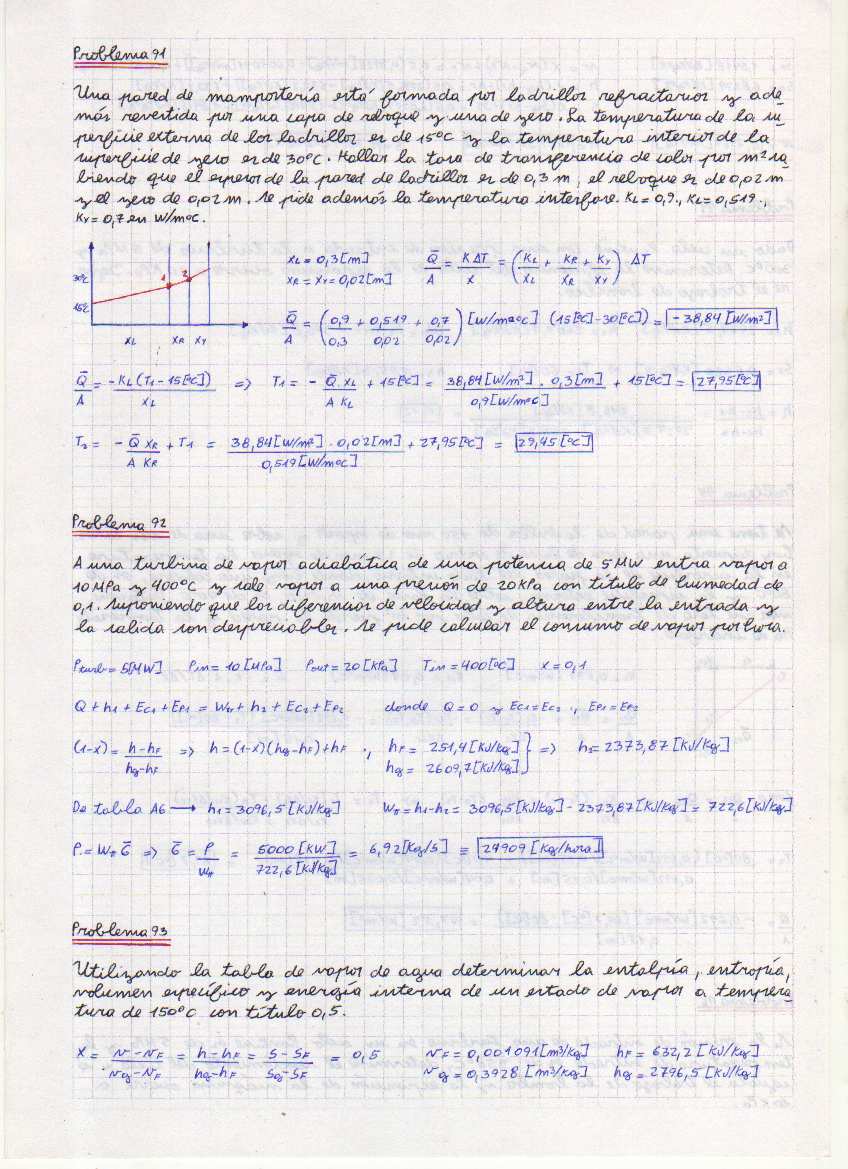 Problema 91
Una pared de mampostería está formada por ladrillos refractarios y ade
más revertida por una capa de reboque y una de yero. La temperatura de la su
perficie externa de los ladrillos es de 15°C y la temperatura interior de la
superficie de yeso es de 30°C. Hallar la tasa de transferencia de calor por m² sa
biendo que el espesor de la pared de ladrillos es de 0,3 m, el reboque es de 0,02 m
y el yeso de 0,02 m. Se pide además la temperatura interfase. KL = 0,9., KL = 0,519.,
KY = 0,7 en W/m°C.
30°C
15°C
1
2
XL XR XY
XL = 0,3 [m]
XR = XY = 0,02 [m]
Q̄/A = K ΔT/X = (KL/XL + KR/XR + KY/XY) ΔT
Q̄/A = (0,9/0,3 + 0,519/0,02 + 0,7/0,02) [W/m²°C] (15[°C] - 30[°C]) = -38,84 [W/m²]
Q̄/A = -KL (T1 - 15[°C])/XL => T1 = - Q̄ XL/A KL + 15[°C] = 38,84 [W/m²] . 0,3 [m]/0,9 [W/m°C] + 15[°C] = 27,95[°C]
T2 = - Q̄ XR/A KR + T1 = 38,84 [W/m²] . 0,02 [m]/0,519 [W/m°C] + 27,95[°C] = 29,45[°C]
Problema 92
A una turbina de vapor adiabática de una potencia de 5 MW entra vapor a
10 MPa y 400°C y sale vapor a una presión de 20 KPa con título de humedad de
0,1. Suponiendo que los diferencias de velocidad y altura entre la entrada y
la salida son despreciables. Se pide calcular el consumo de vapor por hora.
Pturb = 5[MW] Pin = 10 [MPa] Pout = 20 [KPa] Tin = 400[°C] X = 0,1
Q + h1 + EC1 + EP1 = WT + h2 + EC2 + EP2 donde Q = 0 y EC1 = EC2 ., EP1 = EP2
(1-X) = h-hF/hg-hF => h = (1-X)(hg-hF) + hF ., hF = 251,4 [KJ/Kg] hg = 2609,7 [KJ/Kg] } => h2 = 2373,87 [KJ/Kg]
De tabla A6 → h1 = 3096,5 [KJ/Kg] WT = h1-h2 = 3096,5 [KJ/Kg] - 2373,87 [KJ/Kg] = 722,6 [KJ/Kg]
P = WT G̅ => G̅ = P/WT = 5000 [KW]/722,6 [KJ/Kg] = 6,92 [Kg/s] ≡ 24909 [Kg/hora]
Problema 93
Utilizando la tabla de vapor de agua determinar la entalpía, entropía,
volumen específico y energía interna de un estado de vapor a tempera
tura de 150°C con título 0,5.
X = v-vF/vg-vF = h-hF/hg-hF = S-SF/Sg-SF = 0,5 vF = 0,001091 [m³/Kg] hF = 632,2 [KJ/Kg]
vg = 0,3928 [m³/Kg] hg = 2796,5 [KJ/Kg]